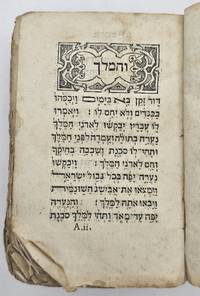 והמלך
דוד זקן בא בימים ויכסהו
בבגדים ולא יחם לו : ויאמרו
לו עבדיו יבקשו לאדני המלך
נערה בתולה ועמדה לפני המלך
ותהי לו סכנת ושכבה בחיקך
וחם לאדני המלך : ויבקשו
נערה יפה בכל גבול ישראל
וימצאו את אבישג השונמית
ויבאו אתה למלך : והנערה
יפה עד מאד ותהי למלך סכנת
A.ii.